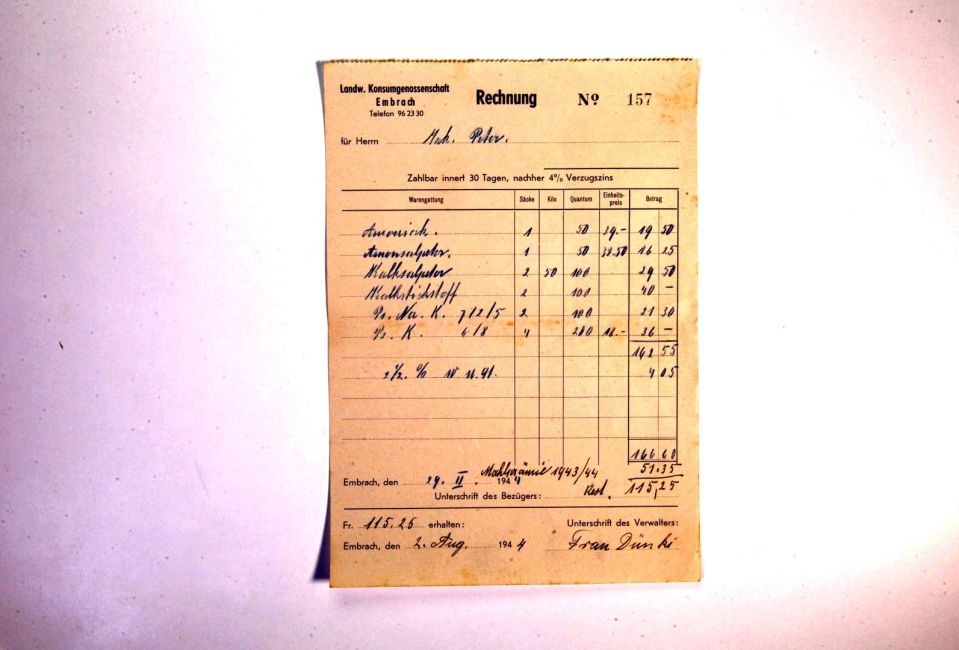 Landw. Konsumgenossenschaft
Embrach
Telefon 96 23 30
Rechnung Nº 157
für Herrn Mak. Peter.
Zahlbar innert 30 Tagen, nachher 4% Verzugszins
Warengattung Säcke Kilo Quantum Einheits-preis Betrag
Amoniak. 1 50 39.- 19 50
Amonsalpeter. 1 50 32.50 16 25
Kalksalpeter 2 50 100 29 50
Kalkstickstoff 2 100 40 –
Ps. Na. K. 7/2/5 2 100 21 30
Ps. K. 6/8 4 200 18.- 36 –
162 55
2½ % W. U. St. 4 05
166 60
Mahlprämie 1943/44 51.35
Embrach, den 29. II. 1944
Unterschrift des Bezügers: Rest. 115,25
Fr. 115.25 erhalten: Unterschrift des Verwalters:
Embrach, den 2. Aug. 1944 Frau Dünki